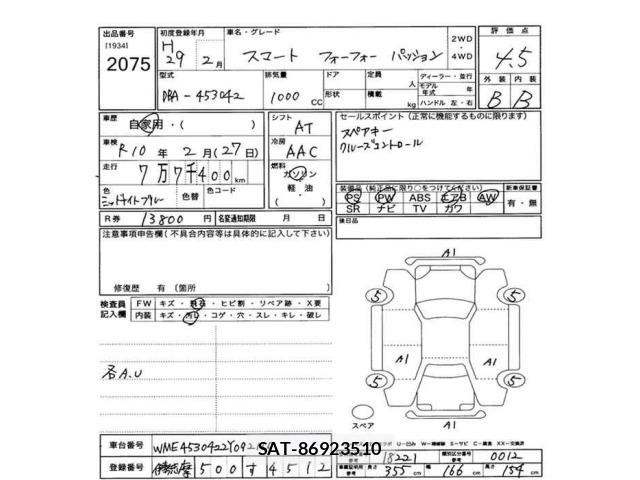 出品番号
[1934]
2075
初度登録年月
H
29 年 2 月
車名・グレード
スマート フォーフォー パッション
2WD
・
4WD
評価点
4.5
外装 内装
B B
型式
DBA-453042
排気量
1000 CC
ドア
形状
定員 人
積載 kg
ディーラー・並行
モデル年式 年
ハンドル 左・右
車歴
自家用・( )
車検
R10 年 2 月(27日)
走行
7万7千400 km
色
ミッドナイトブルー
色替
色コード
シフト
AT
冷房
AAC
燃料
ガソリン
軽油
( )
セールスポイント(正常に機能するものに限ります)
スペアキー
クルーズコントロール
装備品(純正品に限り○をつけてください)
PS PW ABS エアB AW
SR ナビ TV カワ
新車保証書
有・無
R券 13800 円
名変通知期限 月 日
後日品
注意事項申告欄(不具合内容等は具体的に記入して下さい)
修復歴 有 (箇所 )
検査員
記入欄
FW キズ・飛石・ヒビ割・リペア跡・X要
内装 キズ・汚れ・コゲ・穴・スレ・キレ・破レ
各A.U
A1
5 5
A1 A1
5 5
A1
スペア
U-凹み W-補修跡 S-サビ C-腐食 XX-交換済
車台番号 WME4530422Y092
SAT-86923510
登録番号 伊勢志摩 500 す 4512
型式指定番号 参考 18221
類別区分番号 参考 0012
車検証記載 参考 長さ 355 cm 幅 166 cm 高さ 154 cm